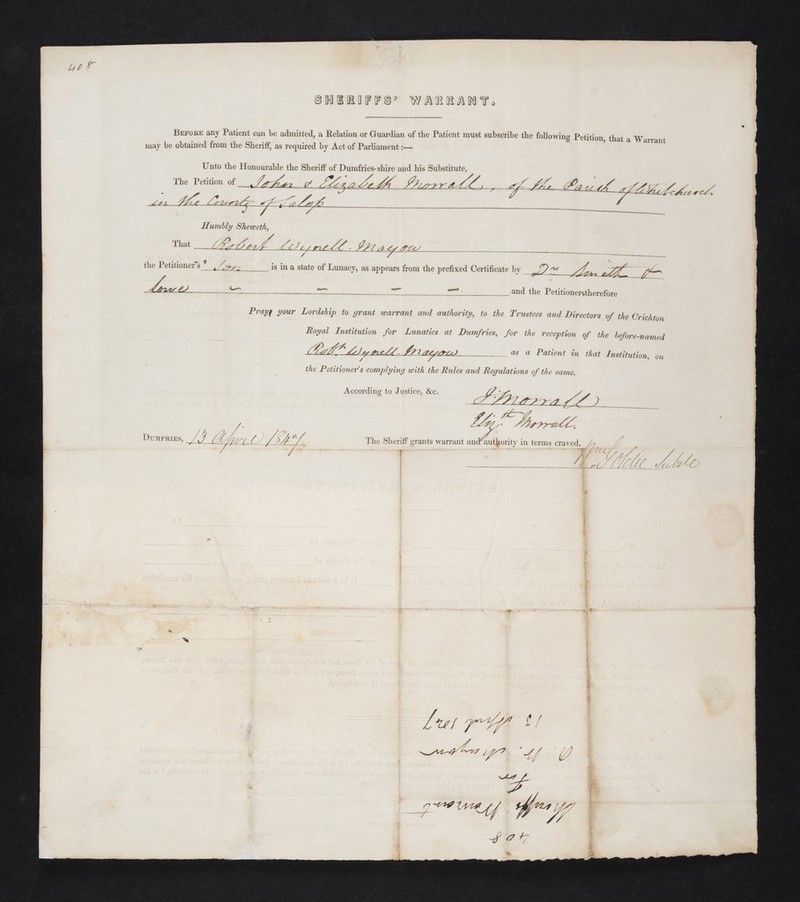 408
SHERIFFS' WARRANT.
BEFORE any Patient can be admitted, a Relation or Guardian of the Patient must subscribe the following Petition, that a Warrant
may be obtained from the Sheriff, as required by Act of Parliament:—
Unto the Honourable the Sheriff of Dumfries-shire and his Substitute,
The Petition of John & Elizabeth Morrall, of the Parish of Whitchurch
in the County of Salop
Humbly Sheweth,
That Robert Wynell-Mayow
the Petitioner's* Son is in a state of Lunacy, as appears from the prefixed Certificate by Drs Smith &
Lowe and the Petitioners therefore
Prays your Lordship to grant warrant and authority, to the Trustees and Directors of the Crichton
Royal Institution for Lunatics at Dumfries, for the reception of the before-named
Robt. Wynell Mayow as a Patient in that Institution, on
the Petitioner's complying with the Rules and Regulations of the same.
According to Justice, &c. J. Morrall
Elizth Morrall.
DUMFRIES, 13 April 1847. The Sheriff grants warrant and authority in terms craved.
Goldie Subste
408
Sheriffs Warrant
For
R. W. Mayow
13 April 1847